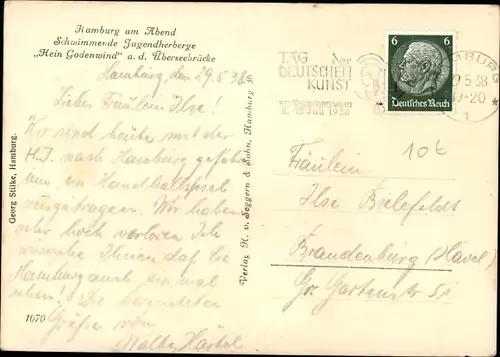 Hamburg am Abend
Schwimmende Jugendherberge
„Hein Godenwind" a. d. Überseebrücke
Hamburg, den 29.5.38
Liebes Fräulein Ilse!
Wir sind heute mit der
H.J. nach Hamburg gefahren
um ein Handballspiel
auszutragen. Wir haben
aber hoch verloren. Ich
wünsche Ihnen daß Sie
Hamburg auch einmal
sehen! Die herzlichsten
Grüße von
Georg Stilke, Hamburg.
1670
Verlag H. v. Seggern & Sohn, Hamburg
TAG der
DEUTSCHEN
KUNST
8. 10 Juli 1938
6 6
Deutsches Reich
HAMBURG
5.38
-20
1
10t
Fräulein
Ilse Bielefeldt
Brandenburg (Havel)
Gr. Gartenstr 51